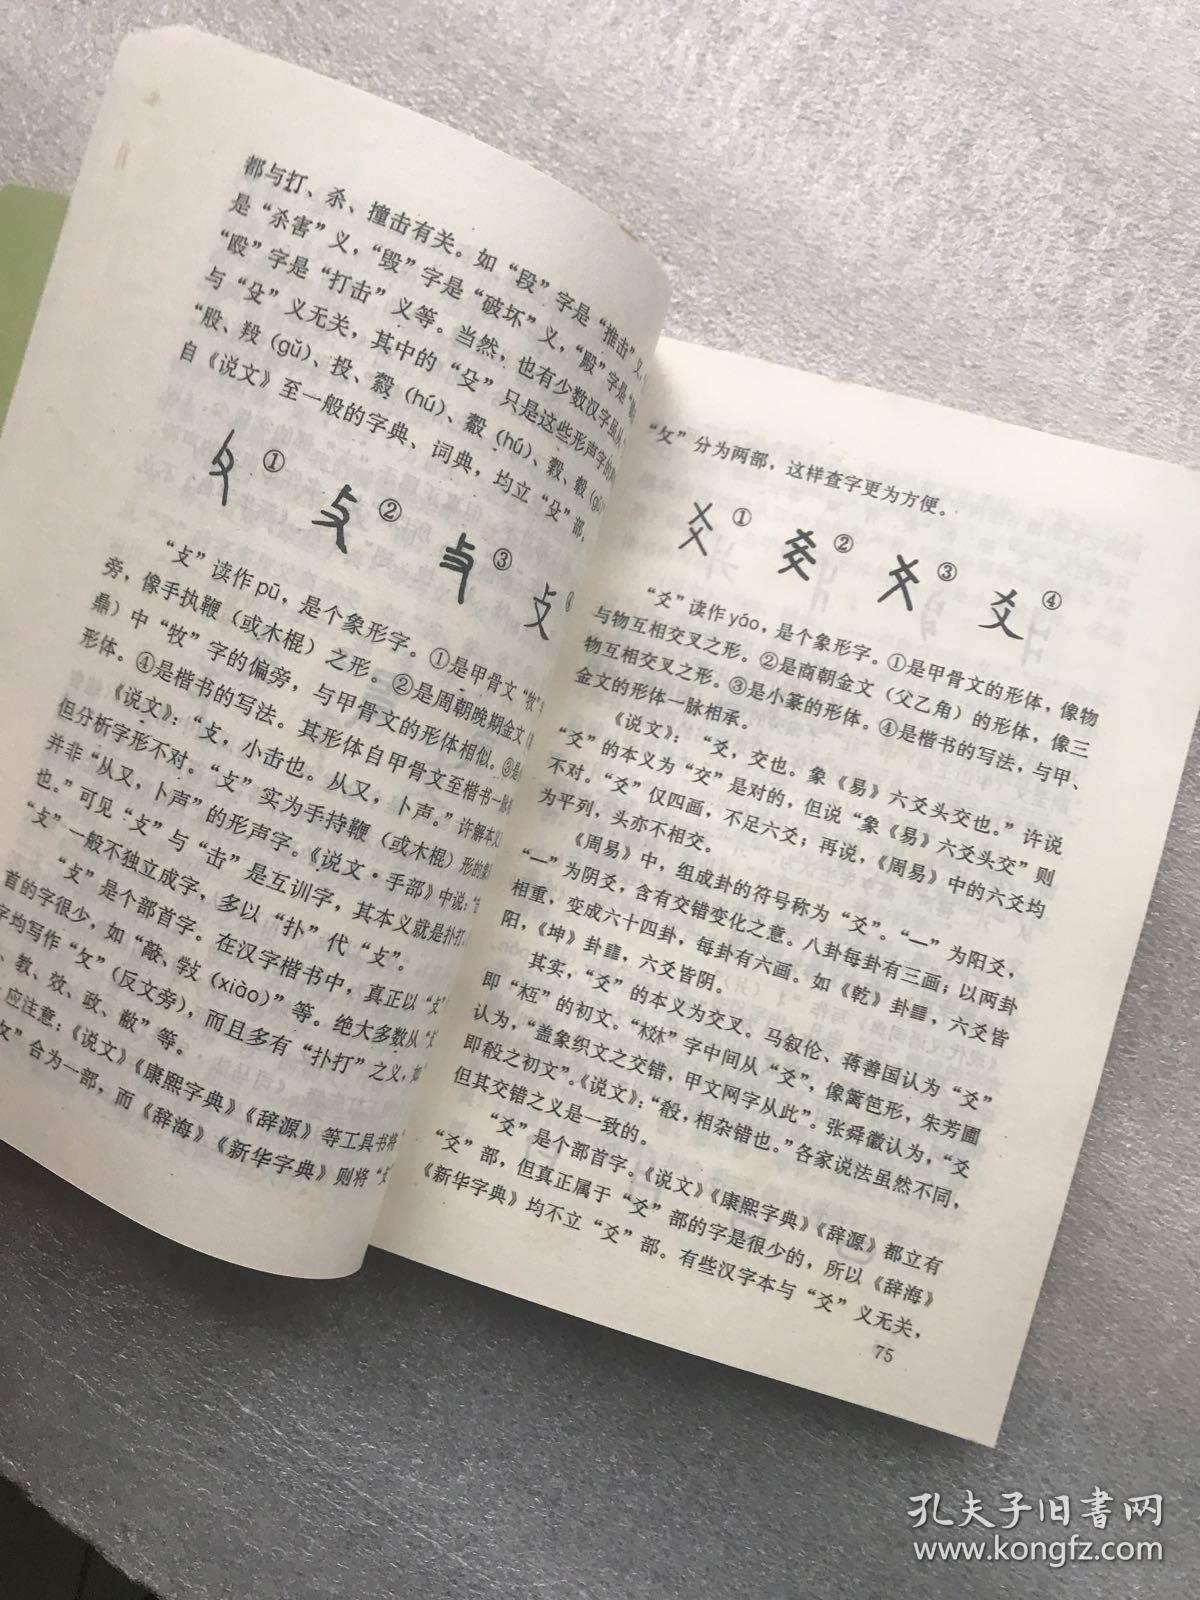 都与打、杀、撞击有关。如“段”字是“推击”义,
是“杀害”义,“毁”字是“破坏”义,“殿”字是
“殴”字是“打击”义等。当然,也有少数汉字虽从
与“殳”义无关,其中的“殳”只是这些形声字的
“股、羖(gǔ)、投、
自《说文》至一般的字典、词典,均立“殳”部。
① ② ③ ④
“攴”读作pū,是个象形字。①是甲骨文“牧”
旁,像手执鞭(或木棍)之形。②是周朝晚期金文(
鼎)中“牧”字的偏旁,与甲骨文的形体相似。③是
形体。④是楷书的写法。其形体自甲骨文至楷书一脉
《说文》:“攴,小击也。从又,卜声。”许解本义
但分析字形不对。“攴”实为手持鞭(或木棍)形的象
并非“从又,卜声”的形声字。《说文·手部》中说:“
也。”可见“攴”与“击”是互训字,其本义就是扑打。
“攴”一般不独立成字,多以“扑”代“攴”。
“攴”是个部首字。在汉字楷书中,真正以“攴
首的字很少,如“敲、敩(xiào)”等。绝大多数从“攴
字均写作“攵”(反文旁),而且多有“扑打”之义,如
、教、效、政、敝”等。
应注意:《说文》《康熙字典》《辞源》等工具书将
攵”合为一部,而《辞海》《新华字典》则将“攴
“攵”分为两部,这样查字更为方便。
① ② ③ ④
“爻”读作yáo,是个象形字。①是甲骨文的形体,像物
与物互相交叉之形。②是商朝金文(父乙角)的形体,像三
物互相交叉之形。③是小篆的形体。④是楷书的写法,与甲、
金文的形体一脉相承。
《说文》:“爻,交也。象《易》六爻头交也。”许说
“爻”的本义为“交”是对的,但说“象《易》六爻头交”则
不对。“爻”仅四画,不足六爻;再说,《周易》中的六爻均
为平列,头亦不相交。
《周易》中,组成卦的符号称为“爻”。“—”为阳爻,
“--”为阴爻,含有交错变化之意。八卦每卦有三画;以两卦
相重,变成六十四卦,每卦有六画。如《乾》卦䷀,六爻皆
阳,《坤》卦䷁,六爻皆阴。
其实,“爻”的本义为交叉。马叙伦、蒋善国认为“爻”
即“枑”的初文。“棥”字中间从“爻”,像篱笆形,朱芳圃
认为,“盖象织文之交错,甲文网字从此”。张舜徽认为,“爻
即殽之初文”。《说文》:“殽,相杂错也。”各家说法虽然不同,
但其交错之义是一致的。
“爻”是个部首字。《说文》《康熙字典》《辞源》都立有
“爻”部,但真正属于“爻”部的字是很少的,所以《辞海》
《新华字典》均不立“爻”部。有些汉字本与“爻”义无关,
75
孔夫子旧书网
www.kongfz.com